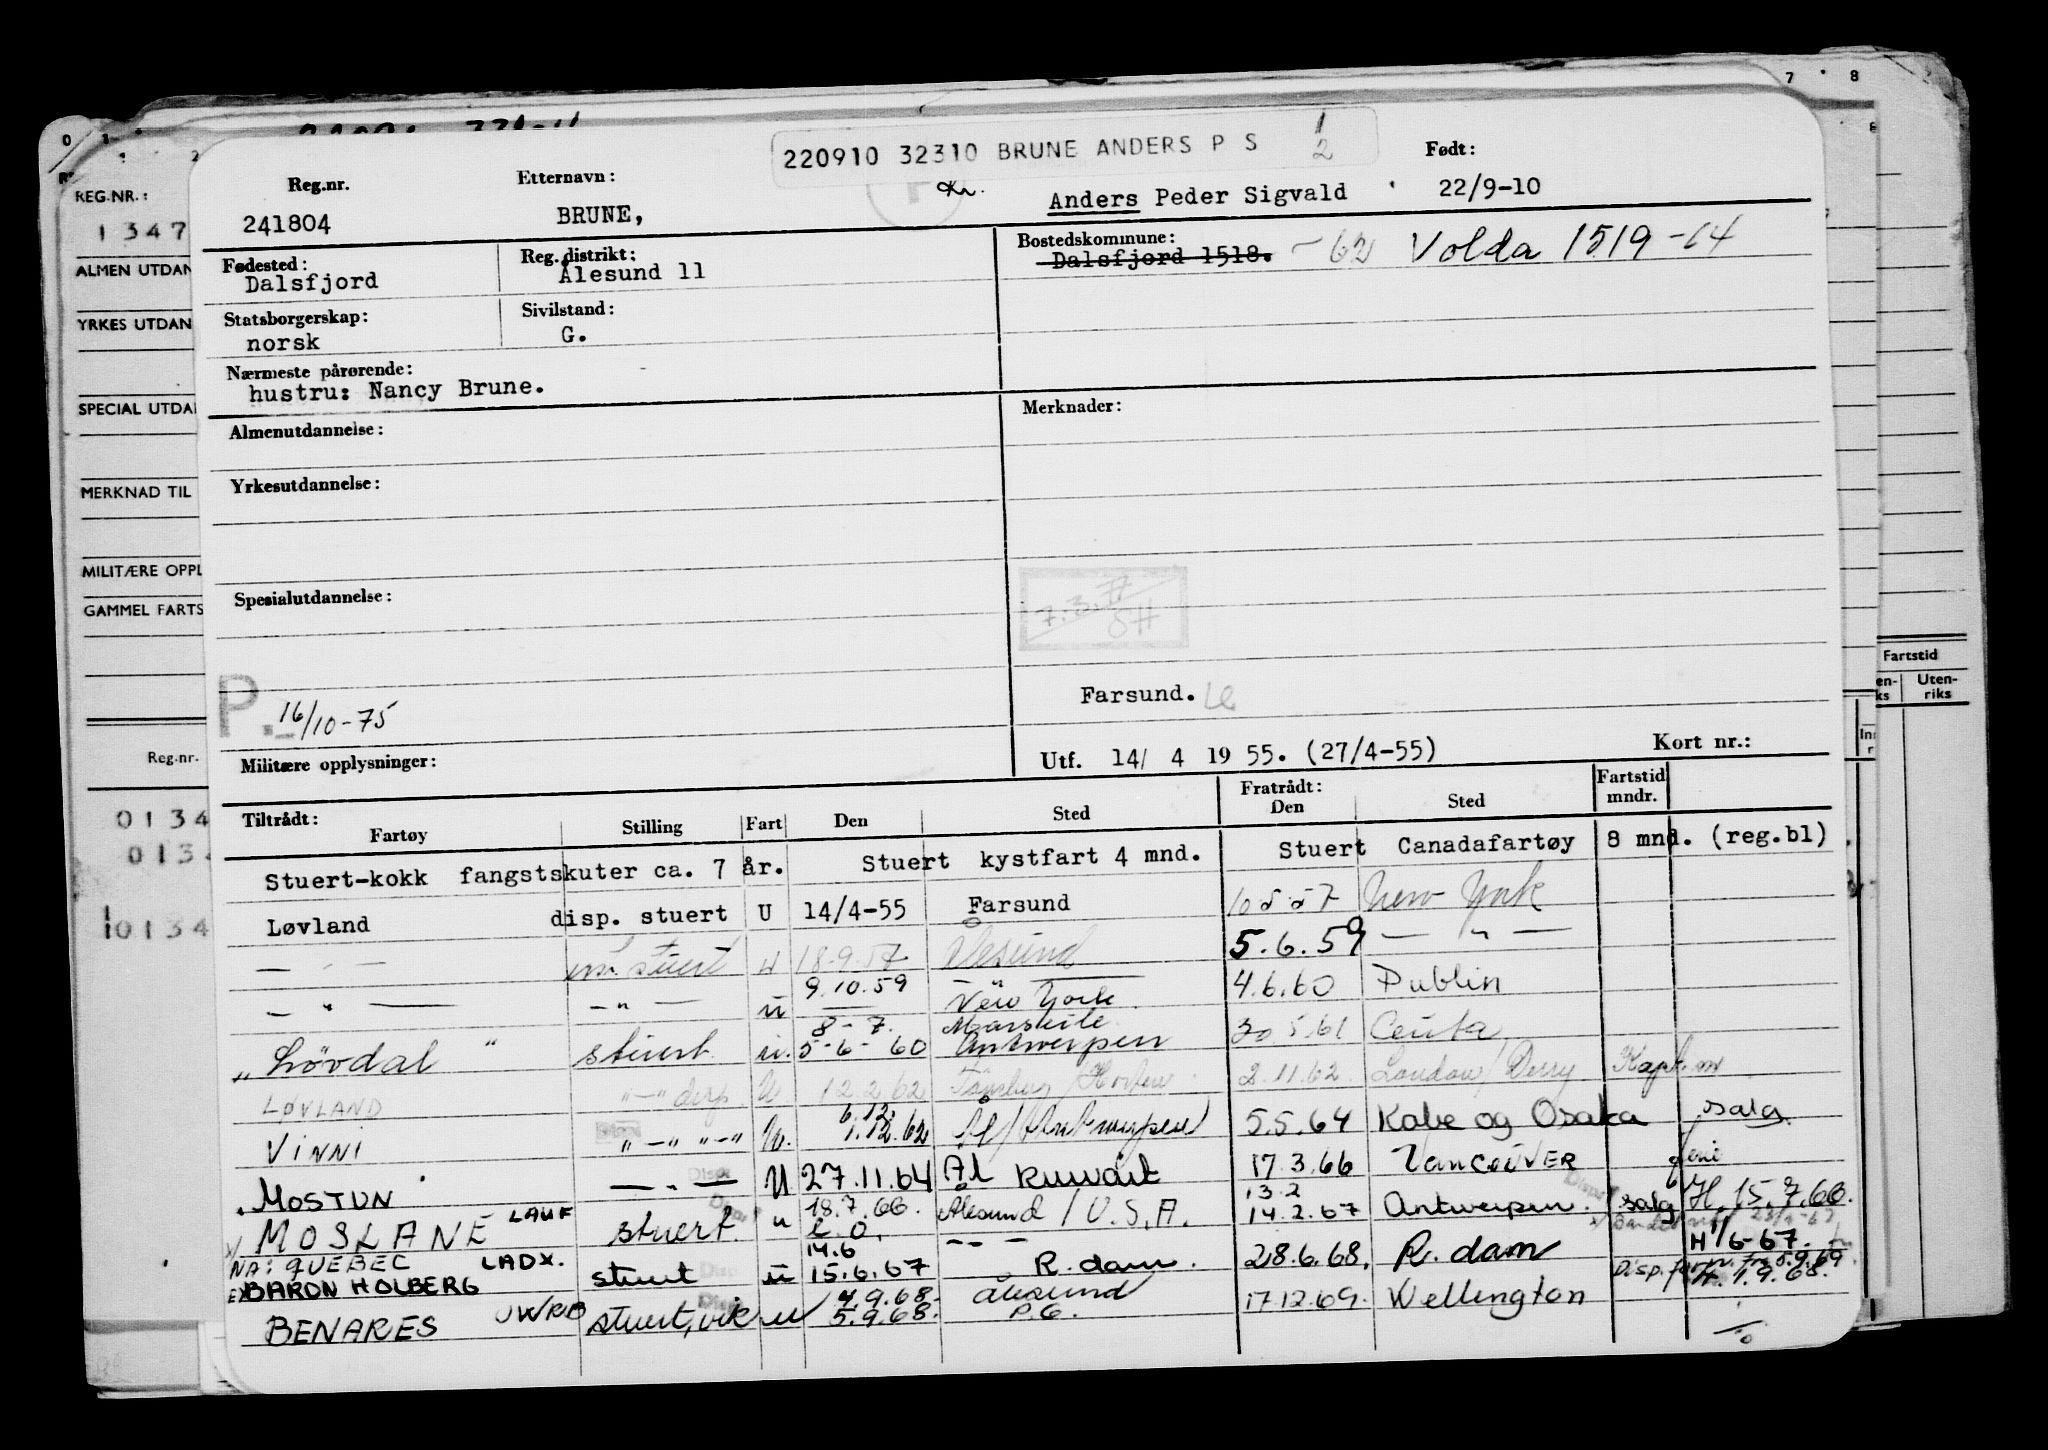 220910 32310 BRUNE ANDERS P S 1/2
Reg.nr. Etternavn: Født:
241804 BRUNE, Anders Peder Sigvald 22/9-10
Fødested: Reg.distrikt: Bostedskommune:
Dalsfjord Ålesund 11 Dalsfjord 1518. -62 Volda 1519-64
Statsborgerskap: Sivilstand:
norsk G.
Nærmeste pårørende:
hustru: Nancy Brune.
Almenutdannelse: Merknader:
Yrkesutdannelse:
Spesialutdannelse:
P. 16/10-75 Farsund.
Militære opplysninger: Utf. 14/ 4 19 55. (27/4-55) Kort nr.:
Tiltrådt: Fratrådt: Fartstid mndr.
Fartøy Stilling Fart Den Sted Den Sted
Stuert-kokk fangstskuter ca. 7 år. Stuert kystfart 4 mnd. Stuert Canadafartøy 8 mnd. (reg.bl)
Løvland disp. stuert U 14/4-55 Farsund 10 5 57 New York
— " — stuert U 18.9.57 Ålesund 5.6.59 — " —
— " — — " — u 9.10.59 New York 4.6.60 Dublin
8-7. Marseile
" Lövdal " stuert u. 5-6-60 Antwerpen 30 5 61 Ceuta
LØVLAND "—" disp. U. 12.2.62 Tønsberg/Horten 2.11.62 London/Derry
6.12.
VINNI "—" "—" U. 1.12.62 Ål/Antwerpen 5.5.64 Kobe og Osaka salg
MOSTUN — " — U 27.11.64 Ål Kuwait 17.3.66 VANCOUVER ferie
18.7.66. 13.2 H. 15.7.66.
MOSLANE LAUF stuert. u Ålesund / U.S.A. 14.2.67 Antwerpen. salg
NA: QUEBEC LADX. 14.6 H 1/6-67.
EX BARON HOLBERG stuert u 15.6.67 R.dam. 28.6.68. R.dam
4.9.68. Ålesund H. 1.9.68.
BENARES stuert, vik u 5.9.68. 17.12.69. Wellington
REG.NR.:
1347
ALMEN UTDAN
YRKES UTDAN
SPECIAL UTDA
MERKNAD TIL
MILITÆRE OPPL
GAMMEL FARTS
Reg.nr.
0134
013
0134
7 8
Fartstid
Uten-riks